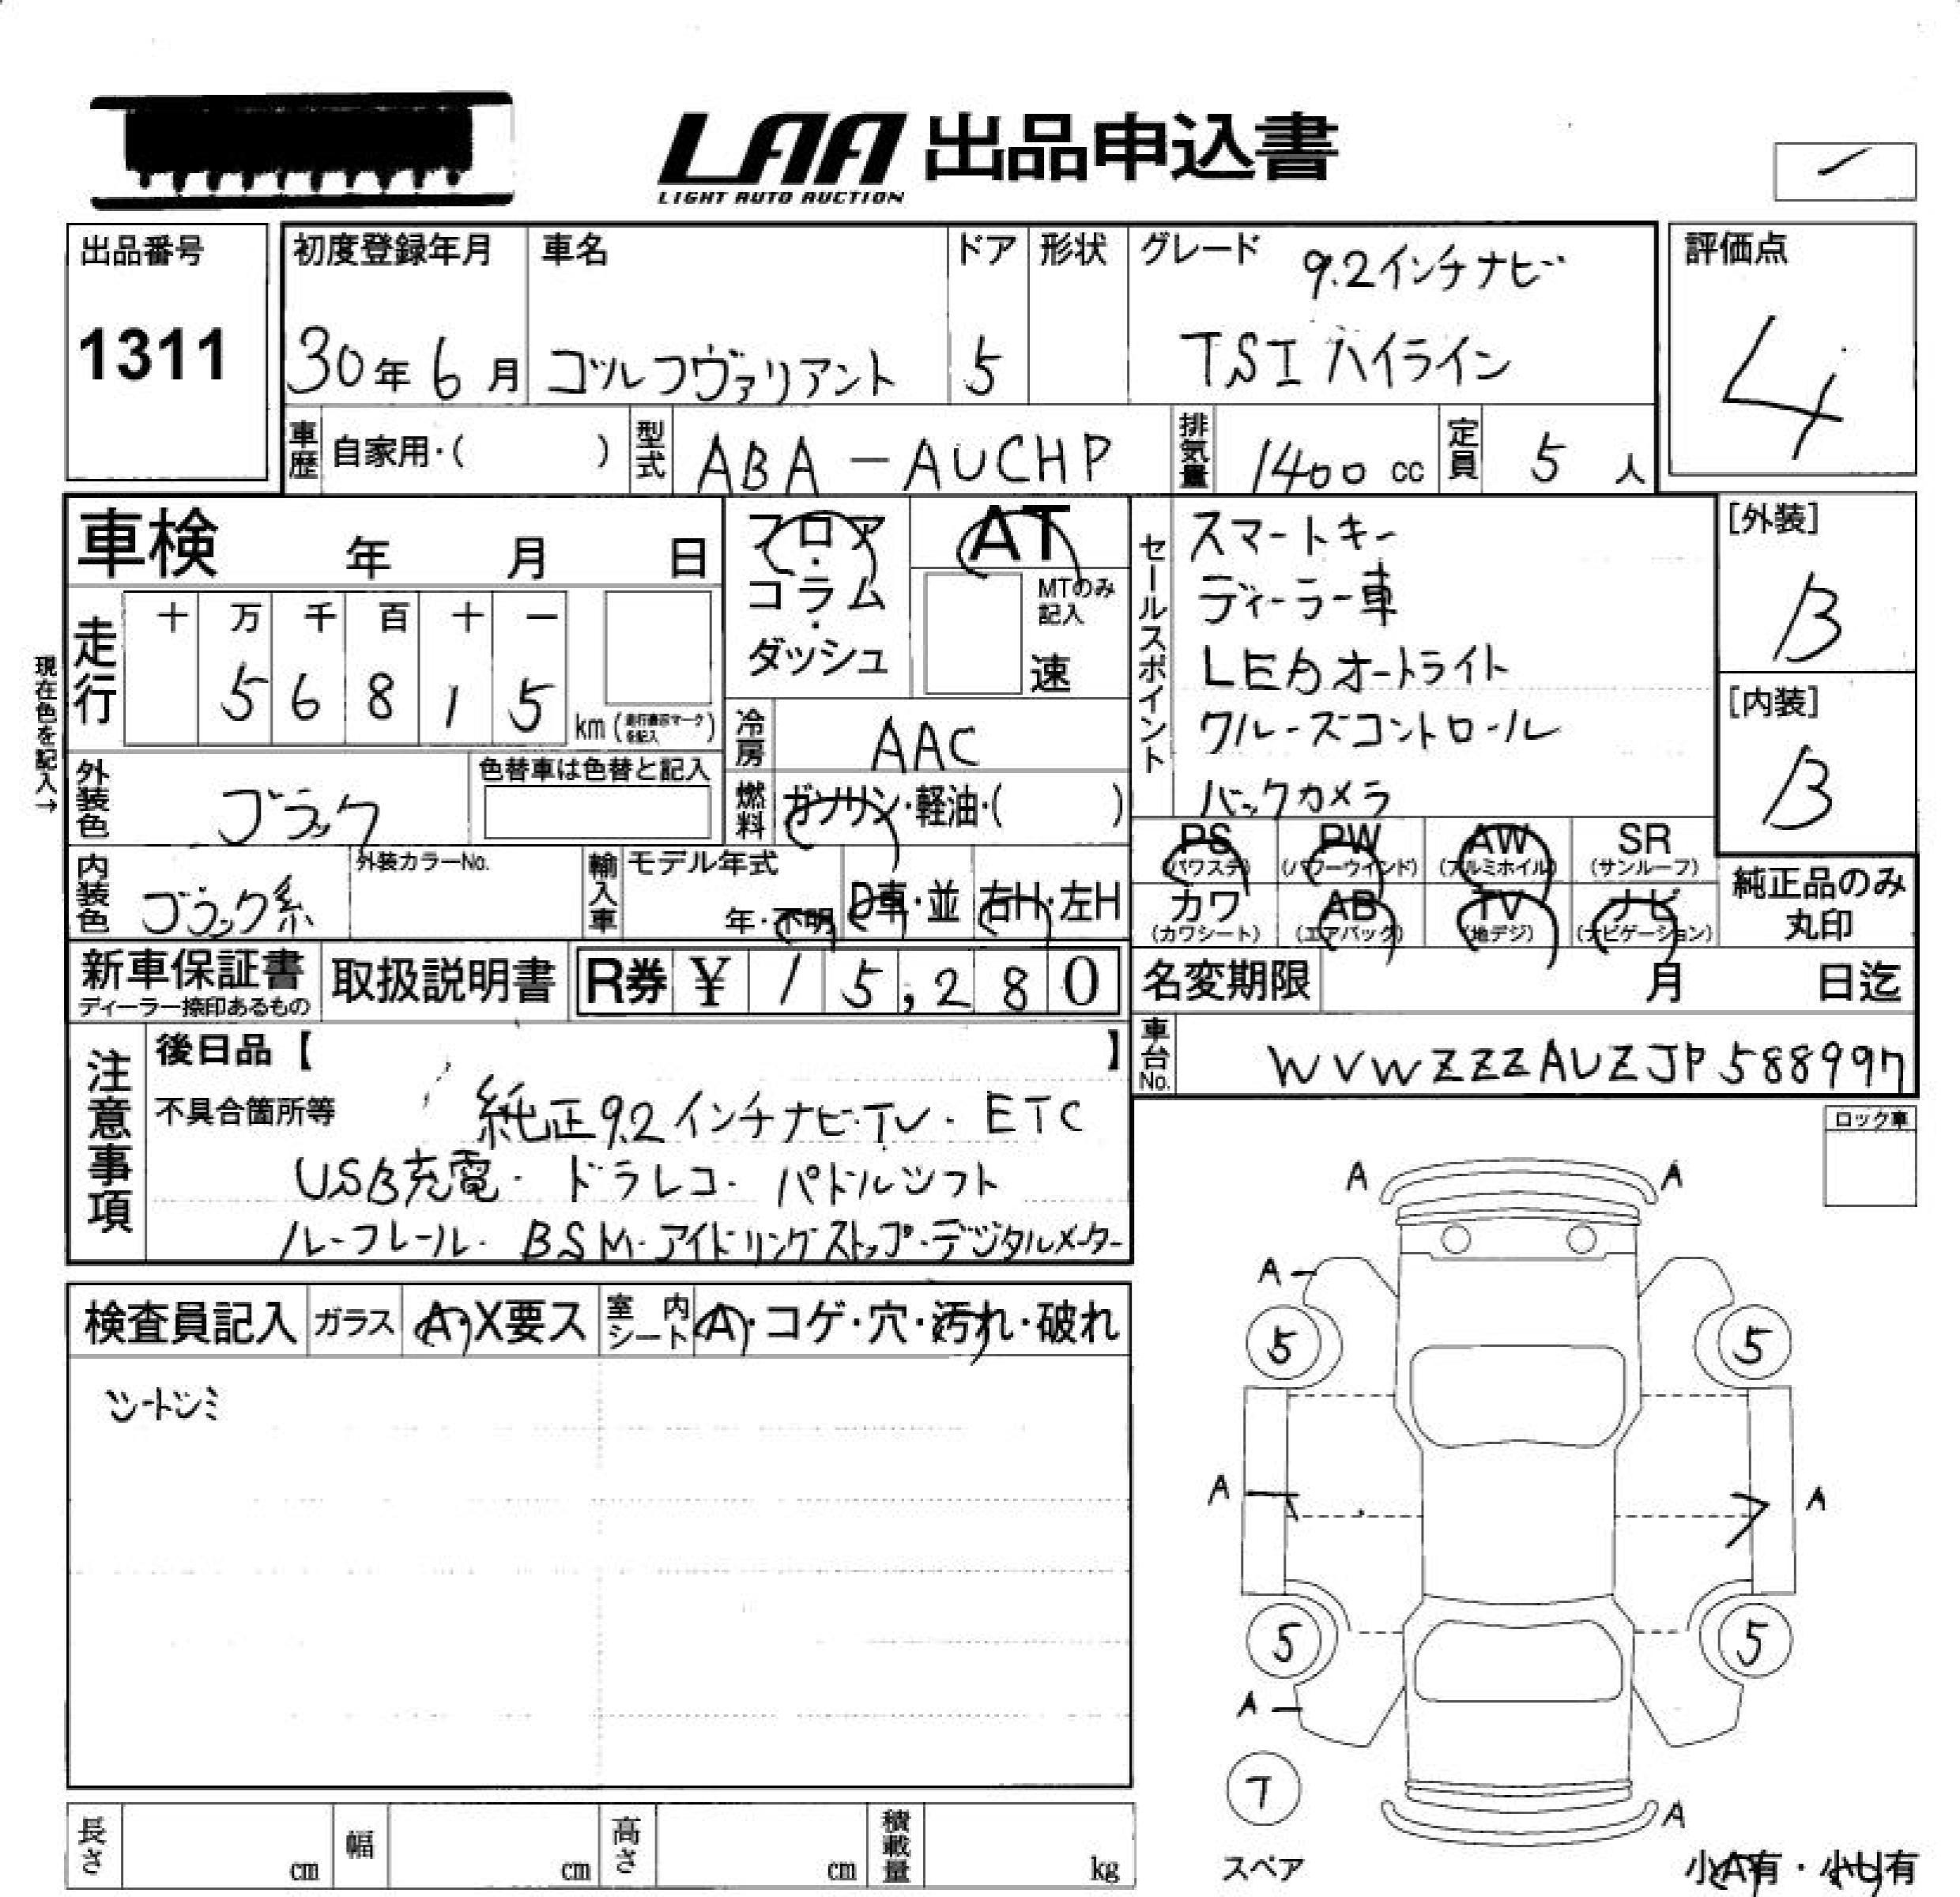 LAA 出品申込書
LIGHT AUTO AUCTION
出品番号
1311
初度登録年月
30年6月
車名
ゴルフヴァリアント
ドア
5
形状
グレード 9.2インチナビ
TSI ハイライン
評価点
4
車歴 自家用・( )
型式 ABA-AUCHP
排気量 1400 cc
定員 5 人
車検 年 月 日
フロア・コラム・ダッシュ
AT
MTのみ記入
速
セールスポイント
スマートキー
ディーラー車
LEDオートライト
クルーズコントロール
バックカメラ
[外装]
B
[内装]
B
現在色を記入→
走行
十 万 千 百 十 一
5 6 8 1 5
km (走行表示マークを記入)
冷房 AAC
外装色 ブラック
色替車は色替と記入
燃料 ガソリン・軽油・( )
内装色 ブラック系
外装カラーNo.
輸入車 モデル年式
年・不明
D車・並
右H・左H
PS (パワステ)
PW (パワーウインド)
AW (アルミホイル)
SR (サンルーフ)
カワ (カワシート)
AB (エアバック)
TV (地デジ)
ナビ (ナビゲーション)
純正品のみ
丸印
新車保証書
ディーラー捺印あるもの
取扱説明書
R券 ¥ 15,280
名変期限 月 日迄
車台No. WVWZZZAUZJP588997
注意事項
後日品【 】
不具合箇所等 純正9.2インチナビ・TV・ETC
USB充電・ドラレコ・パドルシフト
ルーフレール・BSM・アイドリングストップ・デジタルメーター
ロック車
検査員記入 ガラス A・X要ス 室内シート A・コゲ・穴・汚れ・破れ
シートシミ
A A
A
5 5
A A
5 5
A
T
スペア
A
小A有・小U有
長さ cm
幅 cm
高さ cm
積載量 kg